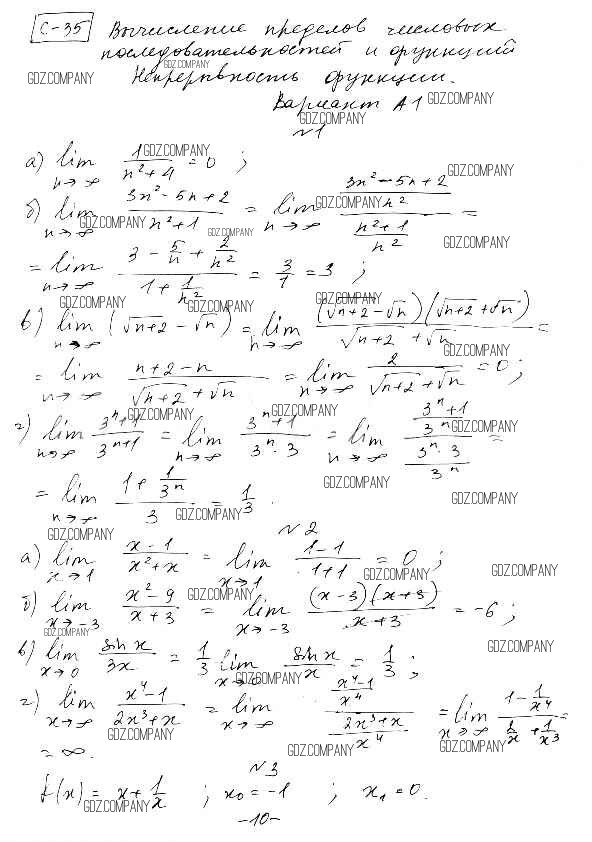 С-35 Вычисление пределов числовых
последовательностей и функций
Непрерывность функции.
Вариант А1
№1
а) lim n→∞ 1/(n²+4) = 0 ;
б) lim n→∞ (3n²-5n+2)/(n²+1) = lim n→∞ ((3n²-5n+2)/n²)/((n²+1)/n²) =
= lim n→∞ (3 - 5/n + 2/n²)/(1 + 1/n²) = 3/1 = 3 ;
в) lim n→∞ (√n+2 - √n) = lim n→∞ (√n+2 - √n)(√n+2 + √n)/(√n+2 + √n) =
= lim n→∞ (n+2-n)/(√n+2 + √n) = lim n→∞ 2/(√n+2 + √n) = 0 ;
г) lim n→∞ (3ⁿ+1)/3ⁿ⁺¹ = lim n→∞ (3ⁿ+1)/(3ⁿ·3) = lim n→∞ ((3ⁿ+1)/3ⁿ)/((3ⁿ·3)/3ⁿ) =
= lim n→∞ (1 + 1/3ⁿ)/3 = 1/3 .
№2
а) lim x→1 (x-1)/(x²+x) = lim x→1 (1-1)/(1+1) = 0 ;
б) lim x→-3 (x²-9)/(x+3) = lim x→-3 (x-3)(x+3)/(x+3) = -6 ;
в) lim x→0 sin x/3x = 1/3 lim x→0 sin x/x = 1/3 ;
г) lim x→∞ (x⁴-1)/(2x³+x) = lim x→∞ ((x⁴-1)/x⁴)/((2x³+x)/x⁴) = lim x→∞ (1 - 1/x⁴)/(2/x + 1/x³) =
= ∞.
№3
f(x) = x + 1/x ; x₀ = -1 ; x₁ = 0.
-10-
GDZ.COMPANY